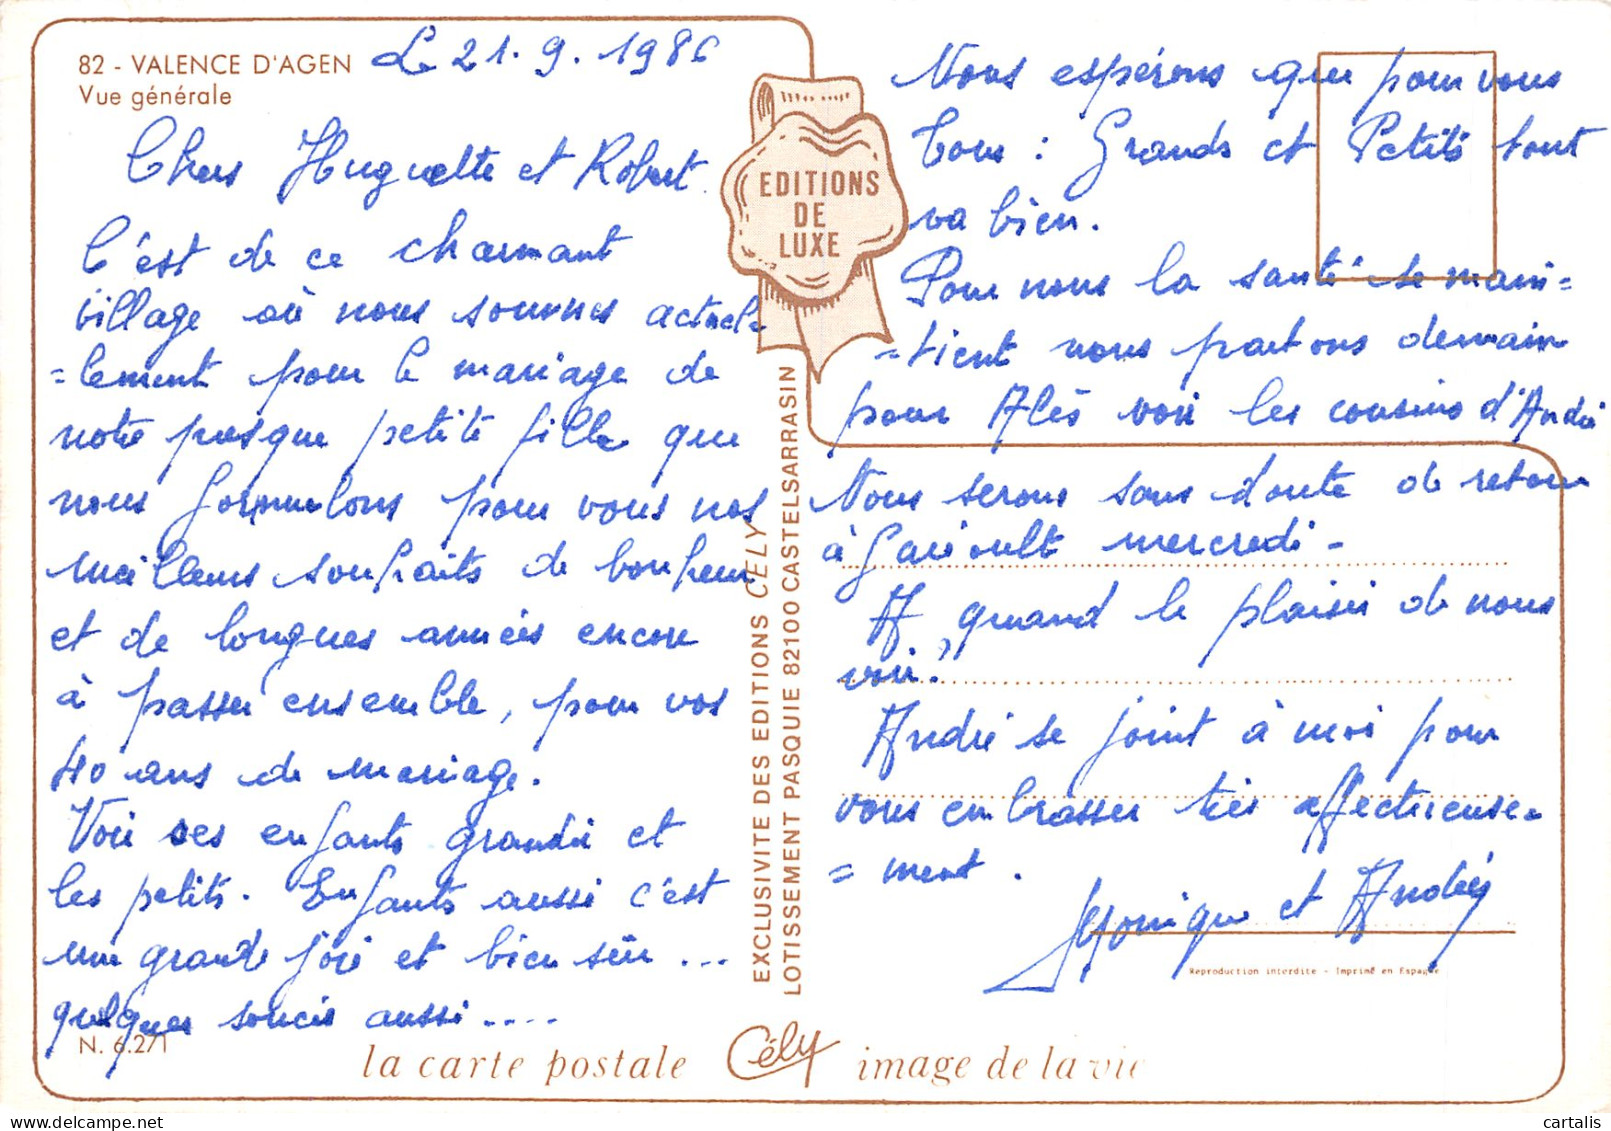 82 - VALENCE D'AGEN
Vue générale
Le 21.9.1986
Chers Huguette et Robert
C'est de ce charmant
village où nous sommes actuel=
=lement pour le mariage de
notre presque petite fille que
nous formulons pour vous nos
meilleurs souhaits de bonheur
et de longues années encore
à passer ensemble, pour vos
40 ans de mariage.
Voir ses enfants grandir et
les petits. Enfants aussi c'est
une grande joie et bien sûr ...
quelques soucis aussi ....
N. 6.271
EDITIONS
DE
LUXE
EXCLUSIVITE DES EDITIONS CELY
LOTISSEMENT PASQUIE 82100 CASTELSARRASIN
Nous espérons que pour vous
Tous : Grands et Petits tout
va bien.
Pour nous la santé se main=
=tient nous partons demain
pour Alès voir les cousins d'André
Nous serons sans doute de retour
à Garéoult mercredi -
A quand le plaisir de nous
voir ?
André se joint à moi pour
vous embrasser très affectueuse=
=ment .
Monique et André
Reproduction interdite - Imprimé en Espagne
la carte postale Cély image de la vie
cartalis